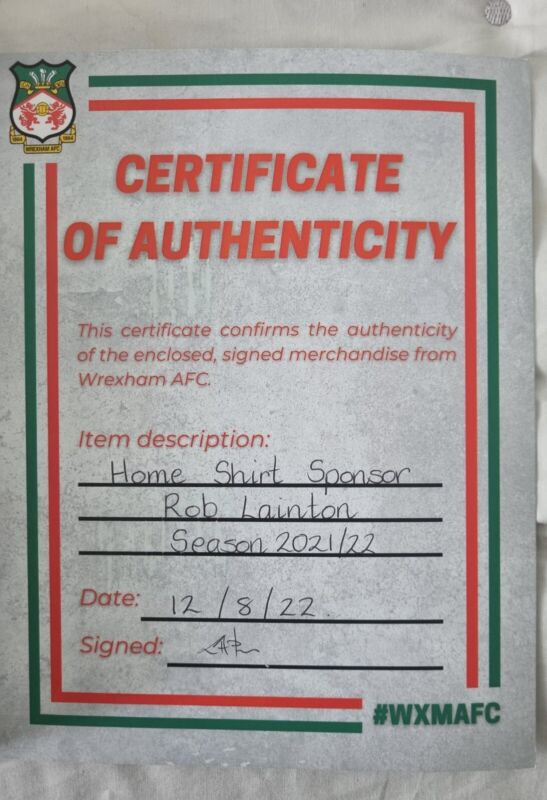 1864 1864
WREXHAM AFC
CERTIFICATE
OF AUTHENTICITY
This certificate confirms the authenticity
of the enclosed, signed merchandise from
Wrexham AFC.
Item description:
Home Shirt Sponsor
Rob Lainton
Season 2021/22
Date: 12/8/22.
Signed:
#WXMAFC